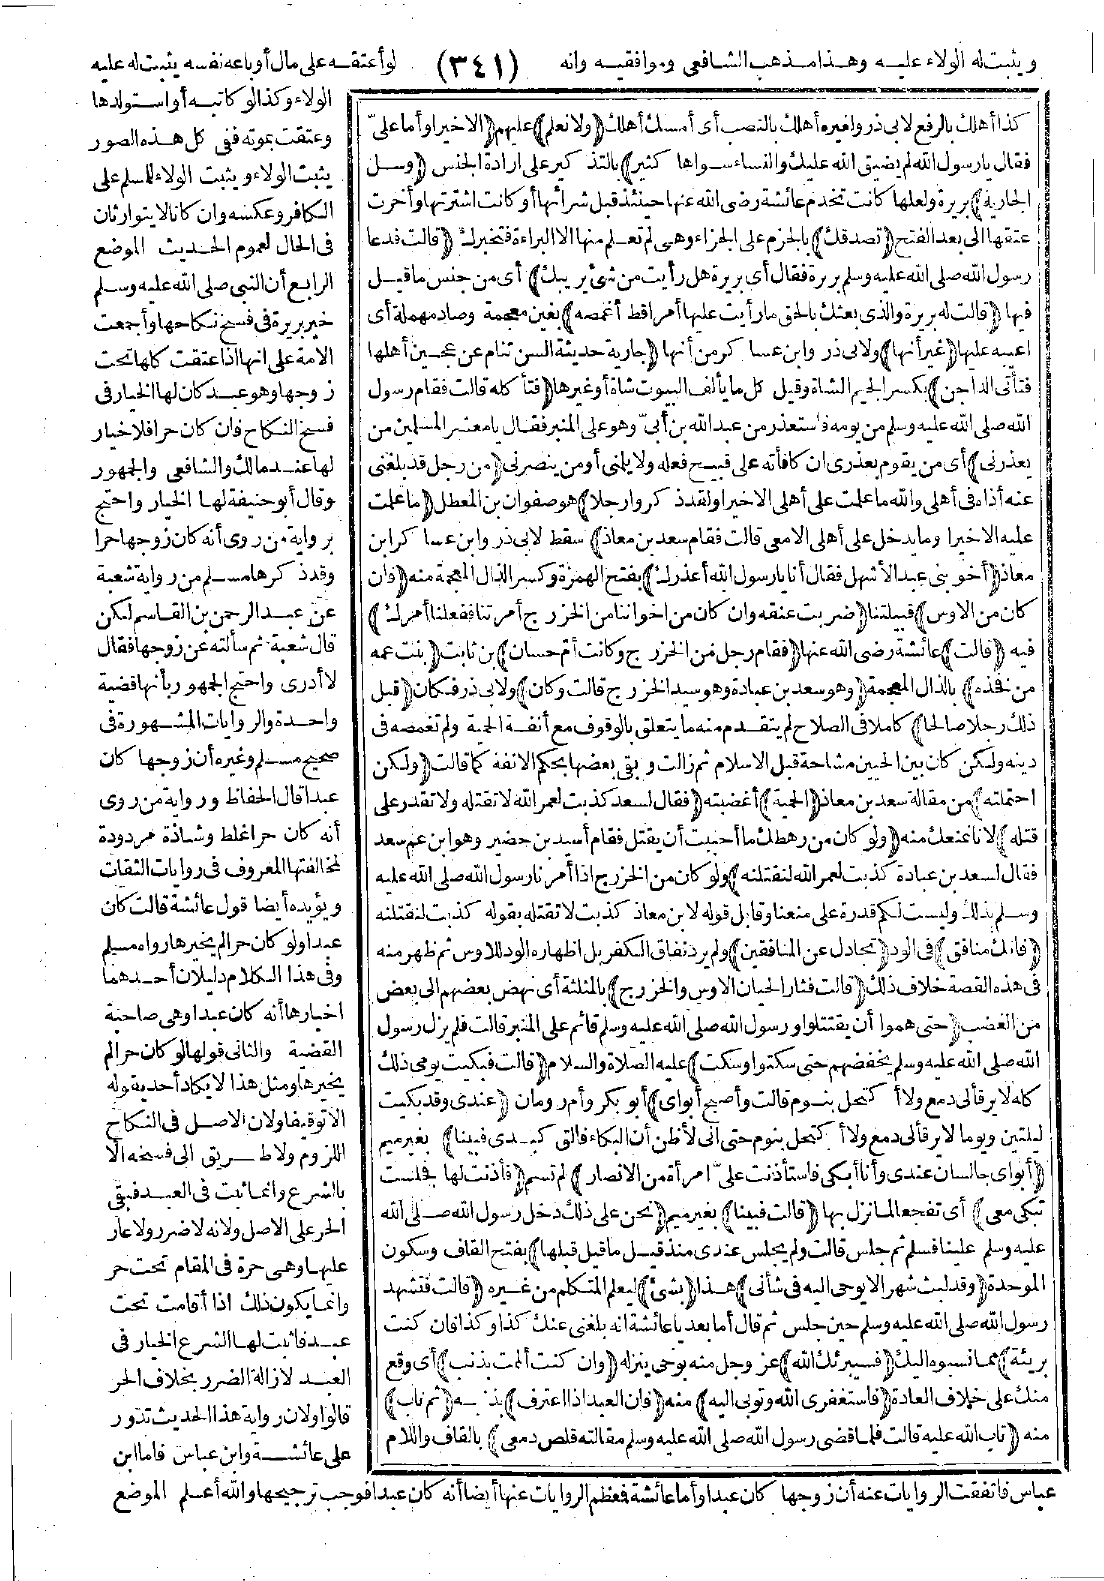 ويثبت له الولاء عليه وهذا مذهب الشافعي وموافقيه وانه (٣٤١) لو أعتقه على مال أو باعه نفسه يثبت له عليه
كذا أهلك بالرفع لابى ذر ولغيره أهلك بالنصب أى أمسك أهلك (ولا نعلم) عليهم (الا خيرا وأما علىّ
فقال يا رسول الله لم يضيق الله عليك والنساء سواها كثير) بالتذكير على ارادة الجنس (وسل
الجارية) بريرة ولعلها كانت تخدم عائشة رضى الله عنها حينئذ قبل شرائها أو كانت اشترتها وأخرت
عتقها الى بعد الفتح (تصدقك) بالجزم على الجزاء وهى لم تعلم منها الا البراءة فتخبرك (قالت فدعا
رسول الله صلى الله عليه وسلم بريرة فقال أى بريرة هل رأيت من شئ يريبك) أى من جنس ما قيل
فيها (قالت له بريرة والذى بعثك بالحق ما رأيت عليها أمرا قط أغمصه) بغين معجمة وصاد مهملة أى
اعيبه عليها (غير أنها) ولابى ذر وابن عساكر من أنها (جارية حديثة السن تنام عن عجين أهلها
فتأتى الداجن) بكسر الجيم الشاة وقيل كل ما يألف البيوت شاة أو غيرها (فتأكله قالت فقام رسول
الله صلى الله عليه وسلم من يومه فاستعذر من عبد الله بن أبىّ وهو على المنبر فقال يا معشر المسلمين من
يعذرنى) أى من يقوم بعذرى ان كافأته على قبيح فعله ولا يلمنى أو من ينصرنى (من رجل قد بلغنى
عنه أذاه فى أهلى والله ما علمت على أهلى الا خيرا ولقد ذكروا رجلا) هو صفوان بن المعطل (ما علمت
عليه الا خيرا وما يدخل على أهلى الا معى قالت فقام سعد بن معاذ) سقط لابى ذر وابن عساكر ابن
معاذ (أخو بنى عبد الأشهل فقال أنا يا رسول الله أعذرك) بفتح الهمزة وكسر الذال المعجمة منه (فان
كان من الاوس) قبيلتنا (ضربت عنقه وان كان من اخواننا من الخزرج أمرتنا ففعلنا أمرك)
فيه (قالت) عائشة رضى الله عنها (فقام رجل من الخزرج وكانت أم حسان) بن ثابت (بنت عمه
من فخذه) بالذال المعجمة (وهو سعد بن عبادة وهو سيد الخزرج قالت وكان) ولابى ذر فكان (قبل
ذلك رجلا صالحا) كاملا فى الصلاح لم يتقدم منه ما يتعلق بالوقوف مع أنفة الحمية ولم تغمصه فى
دينه ولكن كان بين الحيين مشاحة قبل الاسلام ثم زالت وبقى بعضها بحكم الانفة كما قالت (ولكن
احتملته) من مقالة سعد بن معاذ (الحمية) أغضبته (فقال لسعد كذبت لعمر الله لا تقتله ولا تقدر على
قتله) لانا نمنعك منه (ولو كان من رهطك ما أحببت أن يقتل فقام أسيد بن حضير وهو ابن عم سعد
فقال لسعد بن عبادة كذبت لعمر الله لنقتلنه) ولو كان من الخزرج اذا أمرنا رسول الله صلى الله عليه
وسلم بذلك وليست لكم قدرة على منعنا وقابل قوله لابن معاذ كذبت لا تقتله بقوله كذبت لنقتلنه
(فانك منافق) فى الود (تجادل عن المنافقين) ولم يرد نفاق الكفر بل اظهاره الود للاوس ثم ظهر منه
فى هذه القصة خلاف ذلك (قالت فثار الحيان الاوس والخزرج) بالمثلثة أى نهض بعضهم الى بعض
من الغضب (حتى هموا أن يقتتلوا ورسول الله صلى الله عليه وسلم قائم على المنبر قالت فلم يزل رسول
الله صلى الله عليه وسلم يخفضهم حتى سكتوا وسكت) عليه الصلاة والسلام (قالت فبكيت يومى ذلك
كله لا يرقألى دمع ولا أكتحل بنوم قالت وأصبح أبواى) أبو بكر وأم رومان (عندى وقد بكيت
ليلتين ويوما لا يرقألى دمع ولا أكتحل بنوم حتى انى لأظن أن البكاء فالق كبدى فبينا) بغير ميم
(أبواى جالسان عندى وأنا أبكى فاستأذنت علىّ امرأة من الانصار) لم تسم (فأذنت لها فجلست
تبكى معى) أى تفجعا لما نزل بها (قالت فبينا) بغير ميم (نحن على ذلك دخل رسول الله صلى الله
عليه وسلم علينا فسلم ثم جلس قالت ولم يجلس عندى منذ قيل ما قيل قبلها) بفتح القاف وسكون
الموحدة (وقد لبث شهرا لا يوحى اليه فى شأنى) هذا (بشئ) ليعلم المتكلم من غيره (قالت فتشهد
رسول الله صلى الله عليه وسلم حين جلس ثم قال أما بعد يا عائشة انه بلغنى عنك كذا وكذا فان كنت
بريئة) مما نسبوه اليك (فسيبرئك الله) عز وجل منه بوحى ينزله (وان كنت ألممت بذنب) أى وقع
منك على خلاف العادة (فاستغفرى الله وتوبى اليه) منه (فان العبد اذا اعترف) بذنبه (ثم تاب)
منه (تاب الله عليه قالت فلما قضى رسول الله صلى الله عليه وسلم مقالته قلص دمعى) بالقاف واللام
الولاء وكذا لو كاتبه أو استولدها
وعتقت بموته ففى كل هذه الصور
يثبت الولاء ويثبت الولاء للمسلم على
الكافر وعكسه وان كانا لا يتوارثان
فى الحال لعموم الحديث الموضع
الرابع أن النبى صلى الله عليه وسلم
خير بريرة فى فسخ نكاحها وأجمعت
الامة على انها اذا عتقت كلها تحت
زوجها وهو عبد كان لها الخيار فى
فسخ النكاح فان كان حرا فلا خيار
لها عند مالك والشافعى والجمهور
وقال أبو حنيفة لها الخيار واحتج
برواية من روى أنه كان زوجها حرا
وقد ذكرها مسلم من رواية شعبة
عن عبد الرحمن بن القاسم لكن
قال شعبة ثم سألته عن زوجها فقال
لا أدرى واحتج الجمهور بأنها قضية
واحدة والروايات المشهورة فى
صحيح مسلم وغيره أن زوجها كان
عبدا قال الحفاظ ورواية من روى
أنه كان حرا غلط وشاذة مردودة
لمخالفتها المعروف فى روايات الثقات
ويؤيده أيضا قول عائشة قالت كان
عبدا ولو كان حرا لم يخيرها رواه مسلم
وفى هذا الكلام دليلان أحدهما
اخبارها أنه كان عبدا وهى صاحبة
القضية والثانى قولها لو كان حرا لم
يخيرها ومثل هذا لا يكاد أحد يقوله
الا توقيفا ولان الاصل فى النكاح
اللزوم ولا طريق الى فسخه الا
بالشرع وانما ثبت فى العبد فبقى
الحر على الاصل ولانه لا ضرر ولا عار
عليها وهى حرة فى المقام تحت حر
وانما يكون ذلك اذا أقامت تحت
عبد فاثبت لها الشرع الخيار فى
العبد لازالة الضرر بخلاف الحر
قالوا ولان رواية هذا الحديث تدور
على عائشة وابن عباس فاما ابن
عباس فاتفقت الروايات عنه أن زوجها كان عبدا وأما عائشة فمعظم الروايات عنها أيضا أنه كان عبدا فوجب ترجيحها والله أعلم الموضع